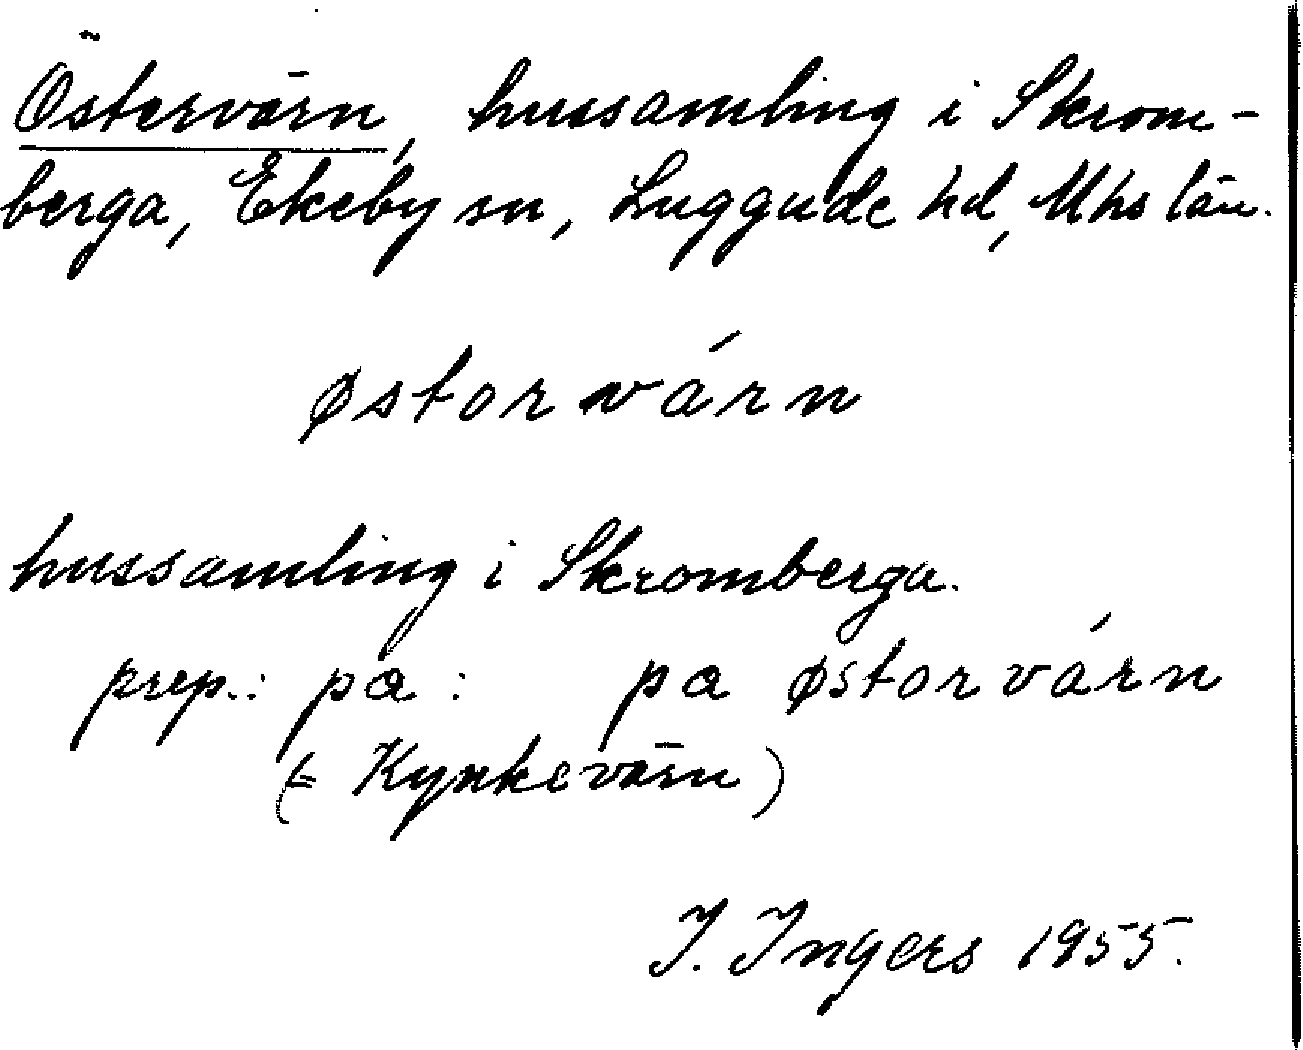 Östervärn, hussamling i Skrom-
berga, Ekeby sn, Luggude hd, Mhs län.
østorvárn
hussamling i Skromberga.
prep.: på: pa østorvárn
(= Kynkevärn)
I. Ingers 1955.